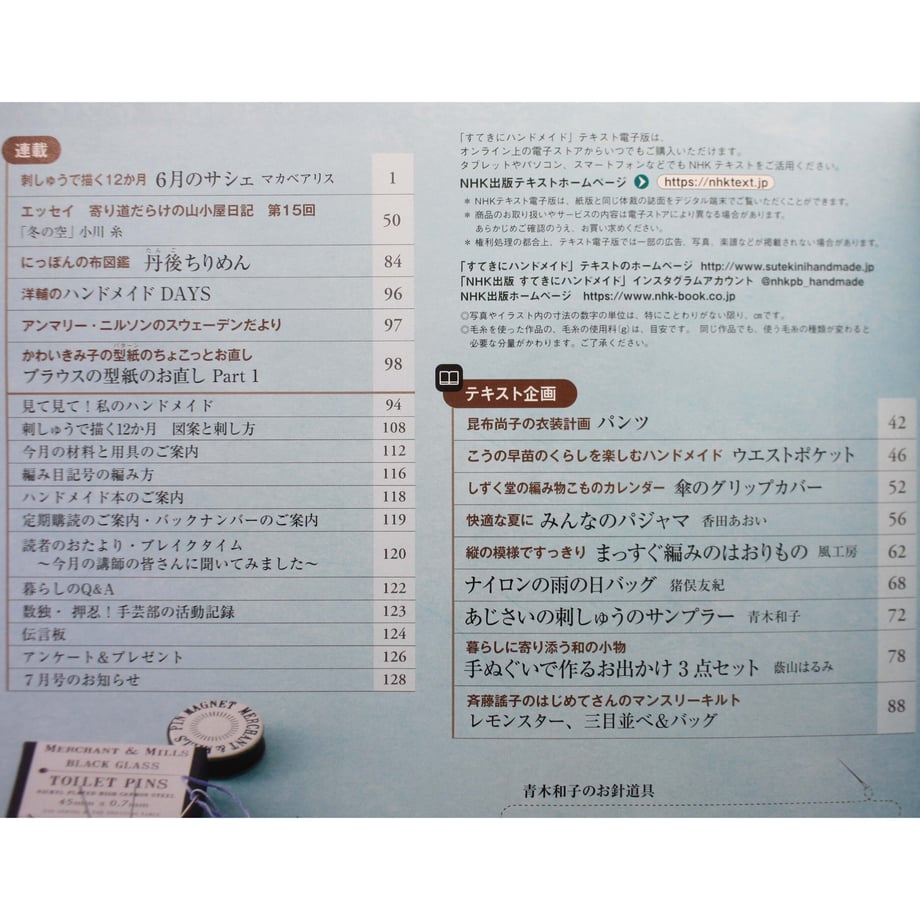 連載
刺しゅうで描く12か月 6月のサシェ マカベアリス 1
エッセイ 寄り道だらけの山小屋日記 第15回
「冬の空」小川 糸 50
たんご
にっぽんの布図鑑 丹後ちりめん 84
洋輔のハンドメイド DAYS 96
アンマリー・ニルソンのスウェーデンだより 97
パターン
かわいきみ子の型紙のちょこっとお直し
ブラウスの型紙のお直し Part 1 98
見て見て！私のハンドメイド 94
刺しゅうで描く12か月 図案と刺し方 108
今月の材料と用具のご案内 112
編み目記号の編み方 116
ハンドメイド本のご案内 118
定期購読のご案内・バックナンバーのご案内 119
読者のおたより・ブレイクタイム
～今月の講師の皆さんに聞いてみました～ 120
暮らしのQ&A 122
数独・ 押忍！手芸部の活動記録 123
伝言板 124
アンケート＆プレゼント 126
7月号のお知らせ 128
「すてきにハンドメイド」テキスト電子版は、
オンライン上の電子ストアからいつでもご購入いただけます。
タブレットやパソコン、スマートフォンなどでも NHK テキストをご活用ください。
NHK出版テキストホームページ https://nhktext.jp
＊ NHKテキスト電子版は、紙版と同じ体裁の誌面をデジタル端末でご覧いただくことができます。
＊ 商品のお取り扱いやサービスの内容は電子ストアにより異なる場合があります。
あらかじめご確認のうえ、お買い求めください。
＊ 権利処理の都合上、テキスト電子版では一部の広告、写真、楽譜などが掲載されない場合があります。
「すてきにハンドメイド」テキストのホームページ http://www.sutekinihandmade.jp
「NHK出版 すてきにハンドメイド」インスタグラムアカウント @nhkpb_handmade
NHK出版ホームページ https://www.nhk-book.co.jp
◎写真やイラスト内の寸法の数字の単位は、特にことわりがない限り、㎝です。
◎毛糸を使った作品の、毛糸の使用料(g)は、目安です。 同じ作品でも、使う毛糸の種類が変わると
必要な分量がかわります。ご了承ください。
テキスト企画
昆布尚子の衣装計画 パンツ 42
こうの早苗のくらしを楽しむハンドメイド ウエストポケット 46
しずく堂の編み物こものカレンダー 傘のグリップカバー 52
快適な夏に みんなのパジャマ 香田あおい 56
縦の模様ですっきり まっすぐ編みのはおりもの 風工房 62
ナイロンの雨の日バッグ 猪俣友紀 68
あじさいの刺しゅうのサンプラー 青木和子 72
暮らしに寄り添う和の小物
手ぬぐいで作るお出かけ 3 点セット 蔭山はるみ 78
斉藤謠子のはじめてさんのマンスリーキルト
レモンスター、三目並べ＆バッグ 88
PIN MAGNET MERCHANT & MILLS
MERCHANT & MILLS
BLACK GLASS
TOILET PINS
NICKEL PLATED HIGH CARBON STEEL
45mm x 0.7mm
青木和子のお針道具